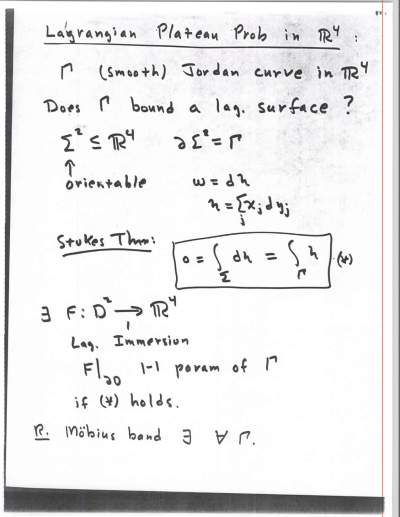 Lagrangian Plateau Prob in ℝ⁴ :
Γ (smooth) Jordan curve in ℝ⁴
Does Γ bound a lag. surface ?
Σ² ⊆ ℝ⁴ ∂Σ² = Γ
↑
orientable ω = dη
η = Σ_j x_j dy_j
Stokes Thm: 0 = ∫_Σ dη = ∫_Γ η (*)
∃ F: D² → ℝ⁴
Lag. Immersion
F|_∂D 1-1 param of Γ
if (*) holds.
R. Möbius band ∃ ∀ Γ.